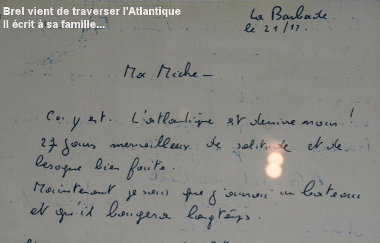 Brel vient de traverser l'Atlantique
Il écrit à sa famille...
La Barbade.
le 21/12.
Ma Miche -
Ça y est. L'atlantique est derrière nous !
27 jours merveilleux de solitude et de
besogne bien faite.
Maintenant je sais que j'aurai un bateau
et qu'il bougera longtemps.